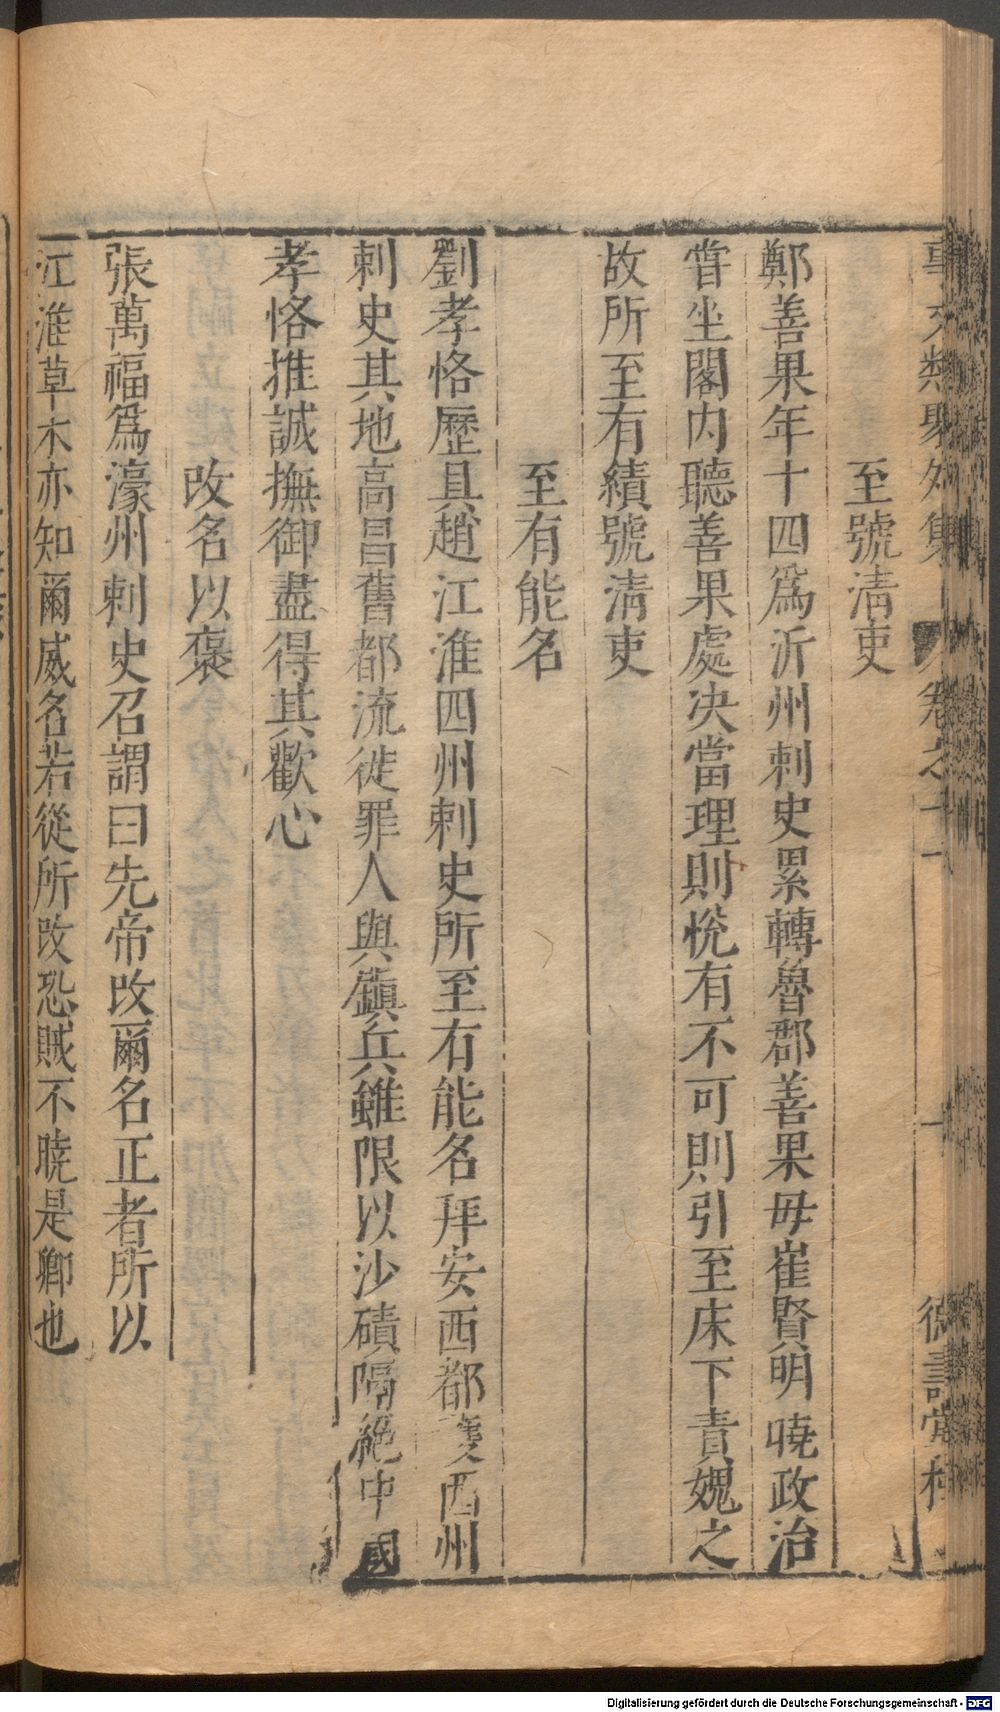 事文類聚外集 卷之十一 十 德壽堂梓
至號清吏
鄭善果年十四爲沂州刺史累轉魯郡善果母崔賢明曉政治
嘗坐閣内聽善果處决當理則悅有不可則引至床下責媿之
故所至有績號清吏
至有能名
劉孝恪歷具趙江淮四州刺史所至有能名拜安西都䕶西州
刺史其地高昌舊都流徙罪人與鎭兵雖限以沙磧隔絕中國
孝恪推誠撫御盡得其歡心
改名以褒
張萬福爲濠州刺史召謂曰先帝改爾名正者所以
江淮草木亦知爾威名若從所改恐賊不曉是卿也
Digitalisierung gefördert durch die Deutsche Forschungsgemeinschaft - DFG